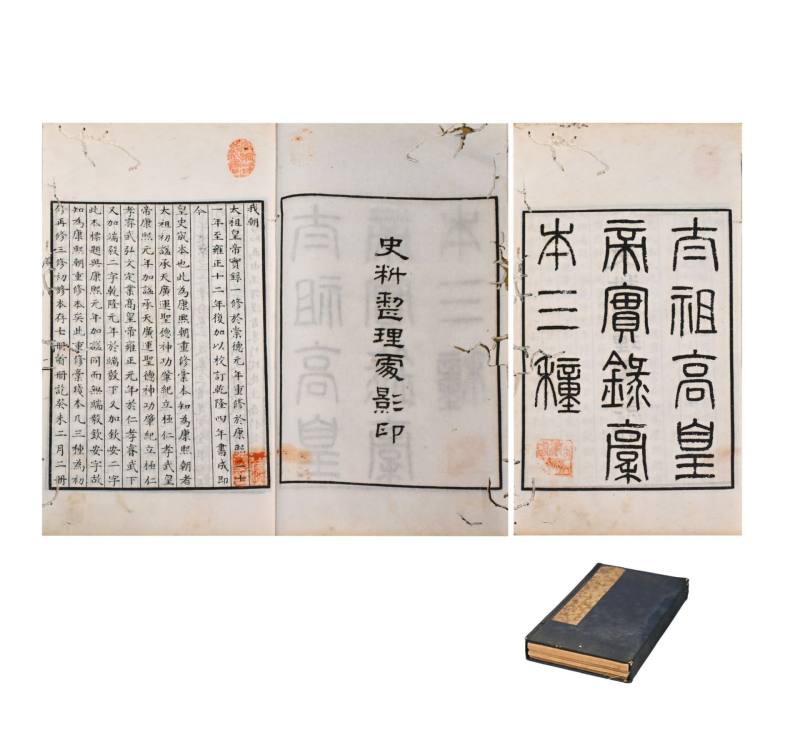 太祖高皇
帝實錄稾
本三種
史料整理處影印
我朝
太祖皇帝實錄一修於崇德元年重修於康熙二十
一年至雍正十二年復加以校訂乾隆四年書成即
今
皇史宬本也此為康熙朝重修稾本知為康熙朝者
太祖初諡承天廣運聖德神功肇紀立極仁孝武皇
帝康熙元年加諡承天廣運聖德神功肇紀立極仁
孝睿武弘文定業高皇帝雍正元年於仁孝睿武下
又加端毅二字乾隆元年於端毅下又加欽安二字
此本標題與康熙元年加諡同而無端毅欽安字故
知為康熙朝重修本矣此重修稾殘本凡三種為初
修再修三修初修本存七冊首冊記癸未二月二冊